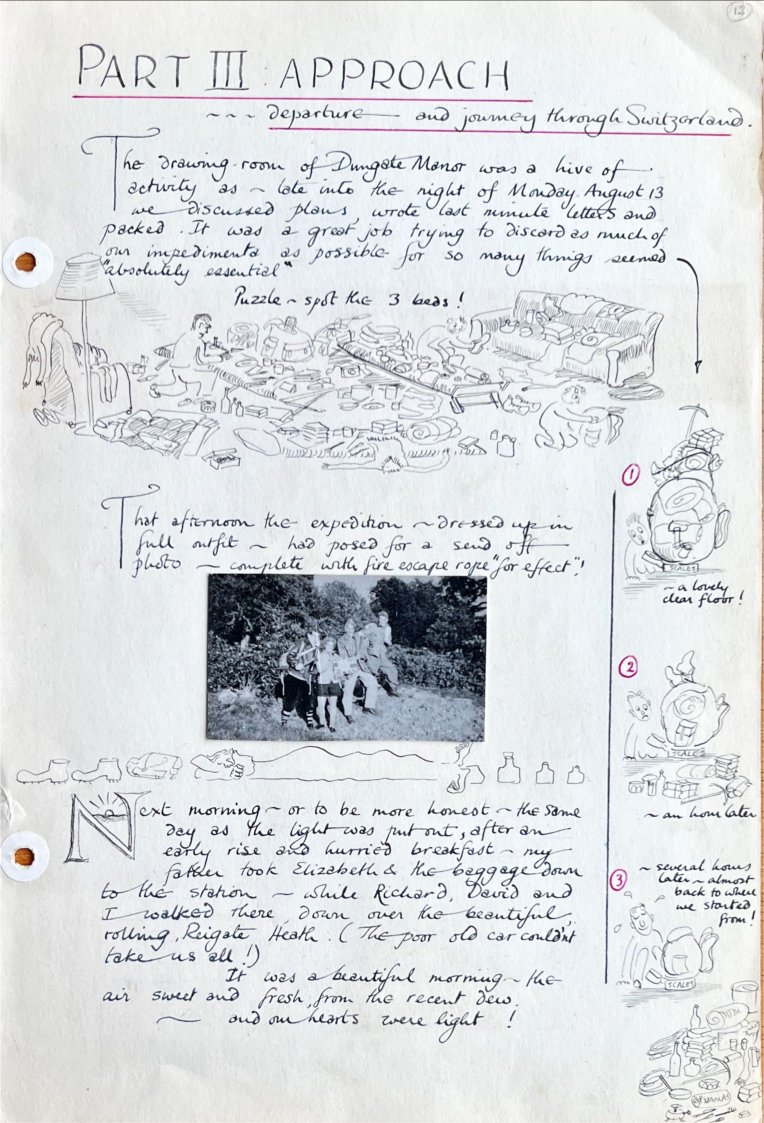 13
PART III : APPROACH
~ ~ ~ departure and journey through Switzerland.
The drawing-room of Dungate Manor was a hive of
activity as ~ late into the night of Monday August 13
we discussed plans, wrote last minute letters and
packed. It was a great job trying to discard as much of
our impedimenta as possible for so many things seemed
"absolutely essential"
Puzzle ~ spot the 3 beds!
1
SCALES
~ a lovely
clear floor!
That afternoon the expedition ~ dressed up in
full outfit ~ had posed for a send off
photo ~ complete with fire escape rope "for effect"!
2
SCALES
~ an hour later
Next morning ~ or to be more honest ~ the same
day as the light was put out, after an
early rise and hurried breakfast ~ my
father took Elizabeth & the baggage down
to the station ~ while Richard, David and
I walked there, down over the beautiful,
rolling, Reigate Heath. (The poor old car couldn't
take us all!)
It was a beautiful morning ~ the
air sweet and fresh, from the recent dew,
~ and our hearts were light!
3
~ several hours
later ~ almost
back to where
we started
from!
SCALES